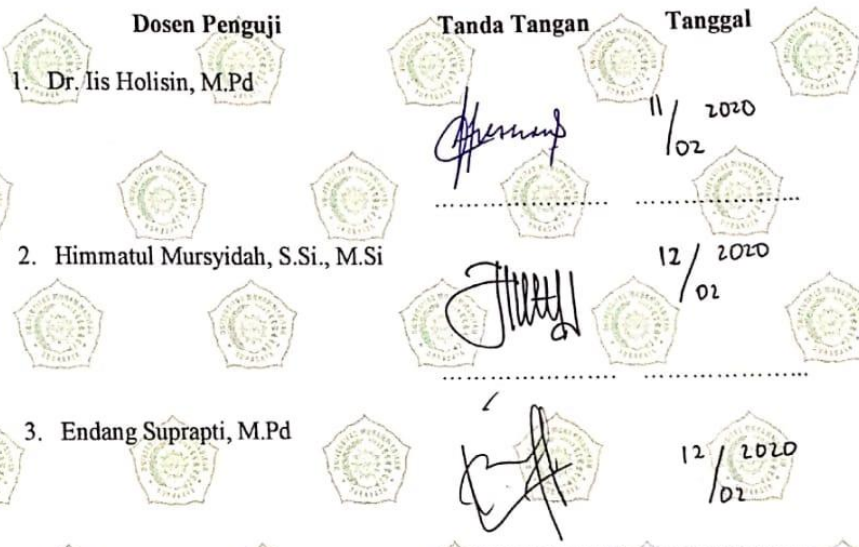 Dosen Penguji Tanda Tangan Tanggal
1. Dr. Iis Holisin, M.Pd
11/02 2020
2. Himmatul Mursyidah, S.Si., M.Si
12/02 2020
3. Endang Suprapti, M.Pd
12/02 2020